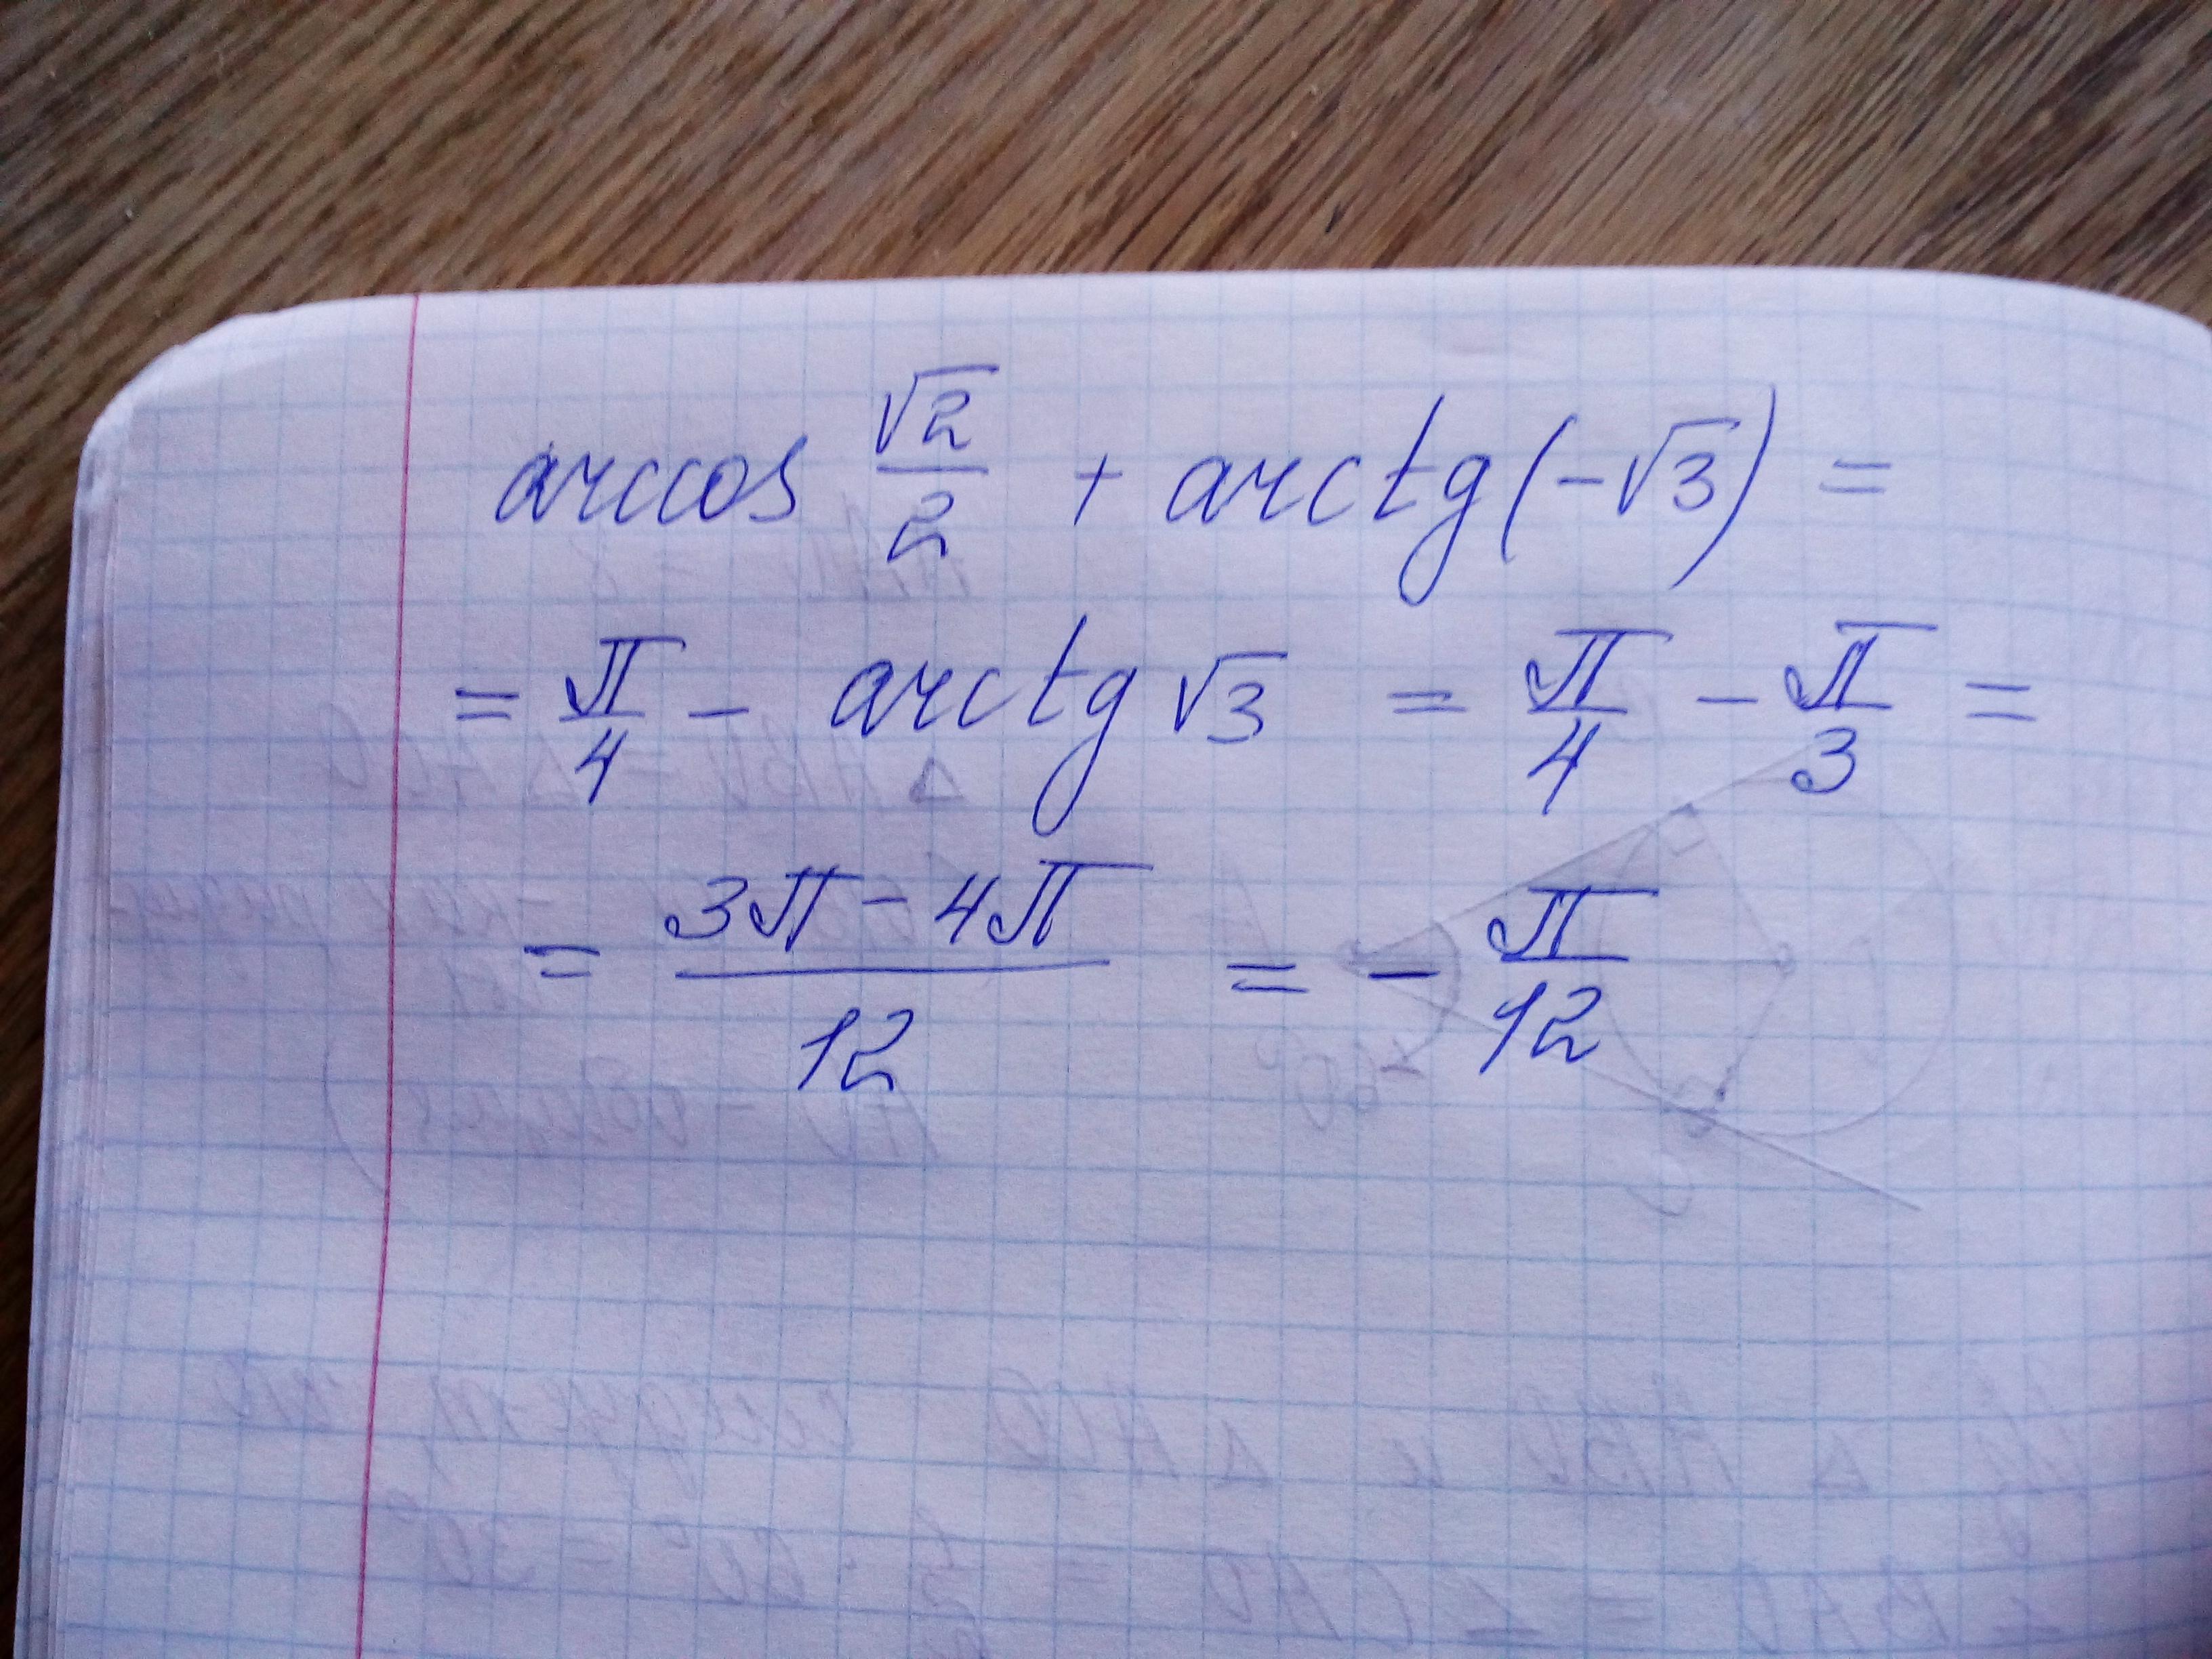 arccos √2/2 + arctg(-√3) =
= π/4 - arctg √3 = π/4 - π/3 =
= (3π - 4π)/12 = - π/12